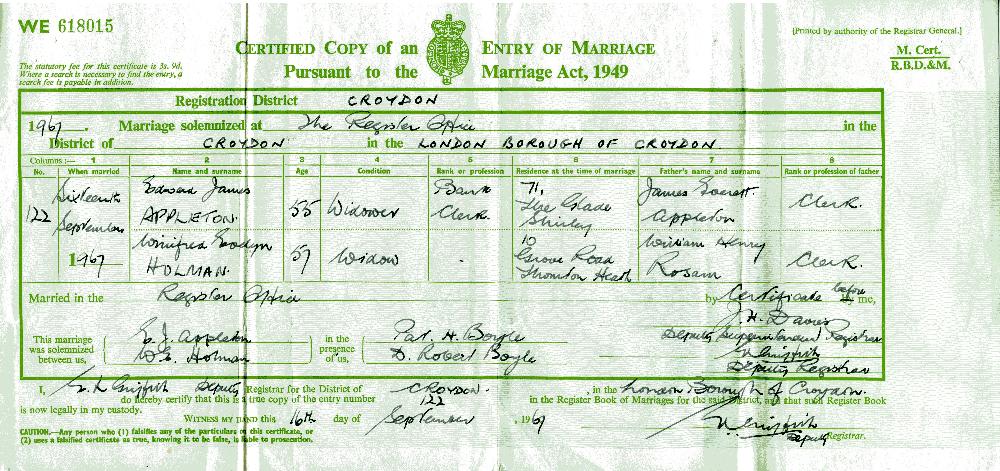 WE 618015
[Printed by authority of the Registrar General.]
CERTIFIED COPY of an ENTRY OF MARRIAGE
Pursuant to the Marriage Act, 1949
M. Cert.
R.B.D.&M.
The statutory fee for this certificate is 3s. 9d.
Where a search is necessary to find the entry, a
search fee is payable in addition.
Registration District CROYDON
1967. Marriage solemnized at The Register Office in the
District of CROYDON in the LONDON BOROUGH OF CROYDON.
Columns :— 1 2 3 4 5 6 7 8
No. When married Name and surname Age Condition Rank or profession Residence at the time of marriage Father's name and surname Rank or profession of father
122 Sixteenth September 1967
Edward James APPLETON. 55 Widower Bank Clerk. 71, The Glade Shirley James Everett Appleton Clerk.
Winifred Evelyn HOLMAN. 57 Widow - 10 Grove Road Thornton Heath William Henry Rosam Clerk.
Married in the Register Office by Certificate before me,
This marriage was solemnized between us,
E. J. Appleton
W. E. Holman
in the presence of us,
Pat. H. Boyle
D. Robert Boyle
J. H. Davies
Deputy Superintendent Registrar
Deputy Registrar
I, Deputy Registrar for the District of CROYDON. , in the London Borough of Croydon.
do hereby certify that this is a true copy of the entry number 122 in the Register Book of Marriages for the said District, and that such Register Book
is now legally in my custody.
WITNESS MY HAND this 16th day of September , 1967
Deputy Registrar.
CAUTION.—Any person who (1) falsifies any of the particulars on this certificate, or
(2) uses a falsified certificate as true, knowing it to be false, is liable to prosecution.